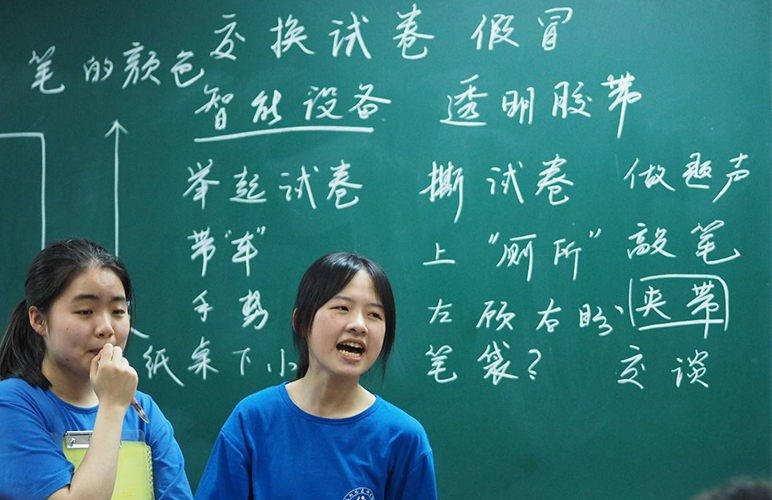 交换试卷 假冒
笔的颜色
智能设备 透明胶带
举起试卷 撕试卷 做题声
带"车" 上"厕所" 敲笔
手势 左顾右盼 夹带
纸桌下小 笔袋? 交谈